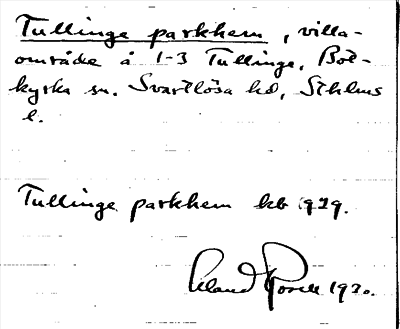 Tullinge parkhem, villa-
område å 1-3 Tullinge, Bot-
kyrka sn. Svartlösa hd, Sthlms
l.
Tullinge parkhem kb 1929.
Roland 1930.